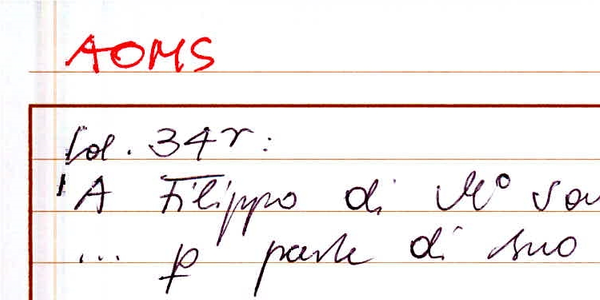 AOMS
fol. 34r:
'A Filippo di M° San
... p parte di suo